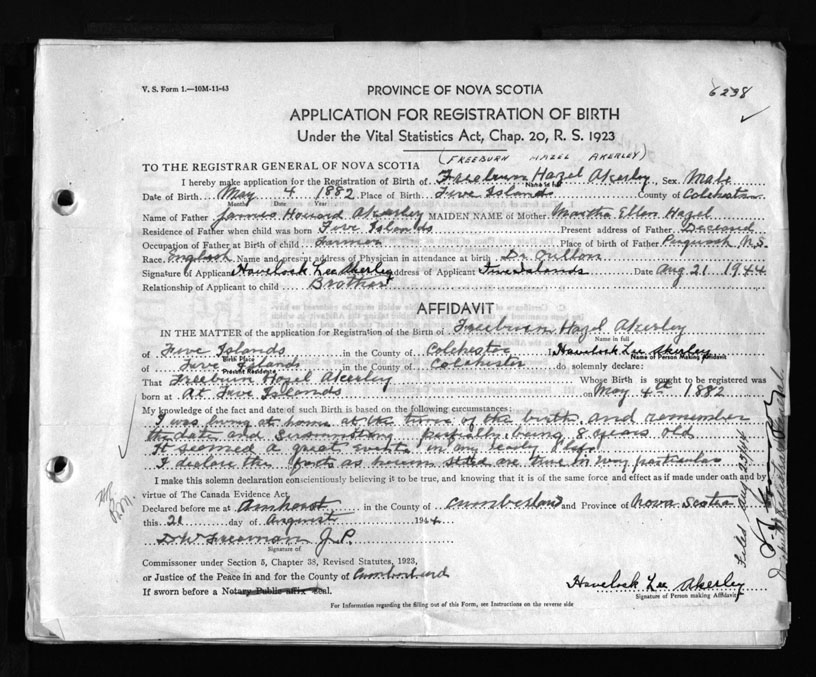 V. S. Form 1.—10M-11-43
PROVINCE OF NOVA SCOTIA
6238
APPLICATION FOR REGISTRATION OF BIRTH
Under the Vital Statistics Act, Chap. 20, R. S. 1923
(FREEBURN HAZEL AKERLEY)
TO THE REGISTRAR GENERAL OF NOVA SCOTIA
I hereby make application for the Registration of Birth of Freeburn Hazel Akerley, Sex Male
Name in full
Date of Birth May 4 1882 Place of Birth Five Islands County of Colchester
Month Date Year
Name of Father James Howard Akerley MAIDEN NAME of Mother Martha Ellen Hazel
Residence of Father when child was born Five Islands Present address of Father Deceased
Occupation of Father at Birth of child Farmer Place of birth of Father Pugwash N.S.
Race English Name and present address of Physician in attendance at birth Dr
Signature of Applicant Havelock Lee Akerley Address of Applicant Five Islands Date Aug 21 1944
Relationship of Applicant to child Brother
AFFIDAVIT
IN THE MATTER of the application for Registration of the Birth of Freeburn Hazel Akerley
Name in full
of Five Islands in the County of Colchester I Havelock Lee Akerley
Birth Place Name of Person Making Affidavit
of Five Islands in the County of Colchester do solemnly declare:
Present Residence
That Freeburn Hazel Akerley Whose Birth is sought to be registered was
born at At Five Islands on May 4th 1882
My knowledge of the fact and date of such Birth is based on the following circumstances:
I was living at home at the time of the birth and remember
the date and being 8 years old
It seemed a great event in my early life
I declare the facts as herein stated are true in
I make this solemn declaration conscientiously believing it to be true, and knowing that it is of the same force and effect as if made under oath and by
virtue of The Canada Evidence Act.
Declared before me at Amherst in the County of Cumberland and Province of Nova Scotia
this 21 day of August 1944
Freeman J.P.
Signature of
Commissioner under Section 5, Chapter 38, Revised Statutes, 1923,
or Justice of the Peace in and for the County of Cumberland
If sworn before a Notary Public affix seal.
Havelock Lee Akerley
Signature of Person making Affidavit
For Information regarding the filling out of this Form, see Instructions on the reverse side
Filed Aug 23/44